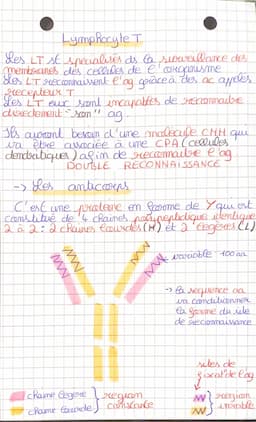 Lymphocyte T
Les LT st spécialisés ds la surveillance des
membranes des cellules de l'organisme
Les LT reconnaissent l'ag grâce à des ac appelés
récepteurs T
Les LT eux sont incapables de reconnaitre
directement "son" ag.
Ils auront besoin d'une molécule CMH qui
va être associée à une CPA (cellules
dendritiques) afin de reconnaitre l'ag
DOUBLE RECONNAISSANCE
-> Les anticorps
C'est une protéine en forme de Y qui est
constitué de 4 chaines polypeptidique identique
2 à 2 : 2 chaines lourdes (H) et 2 légères (L)
variable 100 aa
-> la séquence aa
va conditionner
la forme du site
de reconnaissance
sites de
fixat° de l'ag
chaine légère } région
chaine lourde } constante
} région
variable